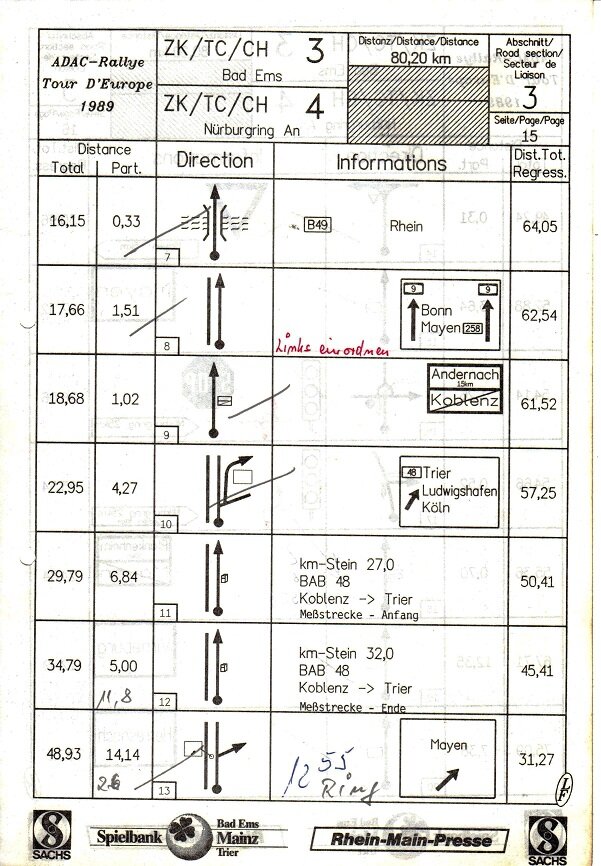 ADAC-Rallye
Tour D'Europe
1989
ZK/TC/CH 3
Bad Ems
ZK/TC/CH 4
Nürburgring An
Distanz/Distance/Distance
80,20 km
Abschnitt/
Road section/
Secteur de
Liaison
3
Seite/Page/Page
15
Distance
Total Part. Direction Informations Dist.Tot.
Regress.
16,15 0,33 7 B49 Rhein 64,05
17,66 1,51 8 9 9
Bonn
Mayen 258
62,54
Links einordnen
18,68 1,02 9 Andernach
15km
Koblenz
61,52
22,95 4,27 10 48 Trier
Ludwigshafen
Köln
57,25
29,79 6,84 11 km-Stein 27,0
BAB 48
Koblenz -> Trier
Meßstrecke - Anfang
50,41
34,79 5,00 12 km-Stein 32,0
BAB 48
Koblenz -> Trier
Meßstrecke - Ende
45,41
11,8
48,93 14,14 13 Mayen 31,27
26
12 55
Ring
SACHS
Spielbank
Bad Ems
Mainz
Trier
Rhein-Main-Presse
SACHS